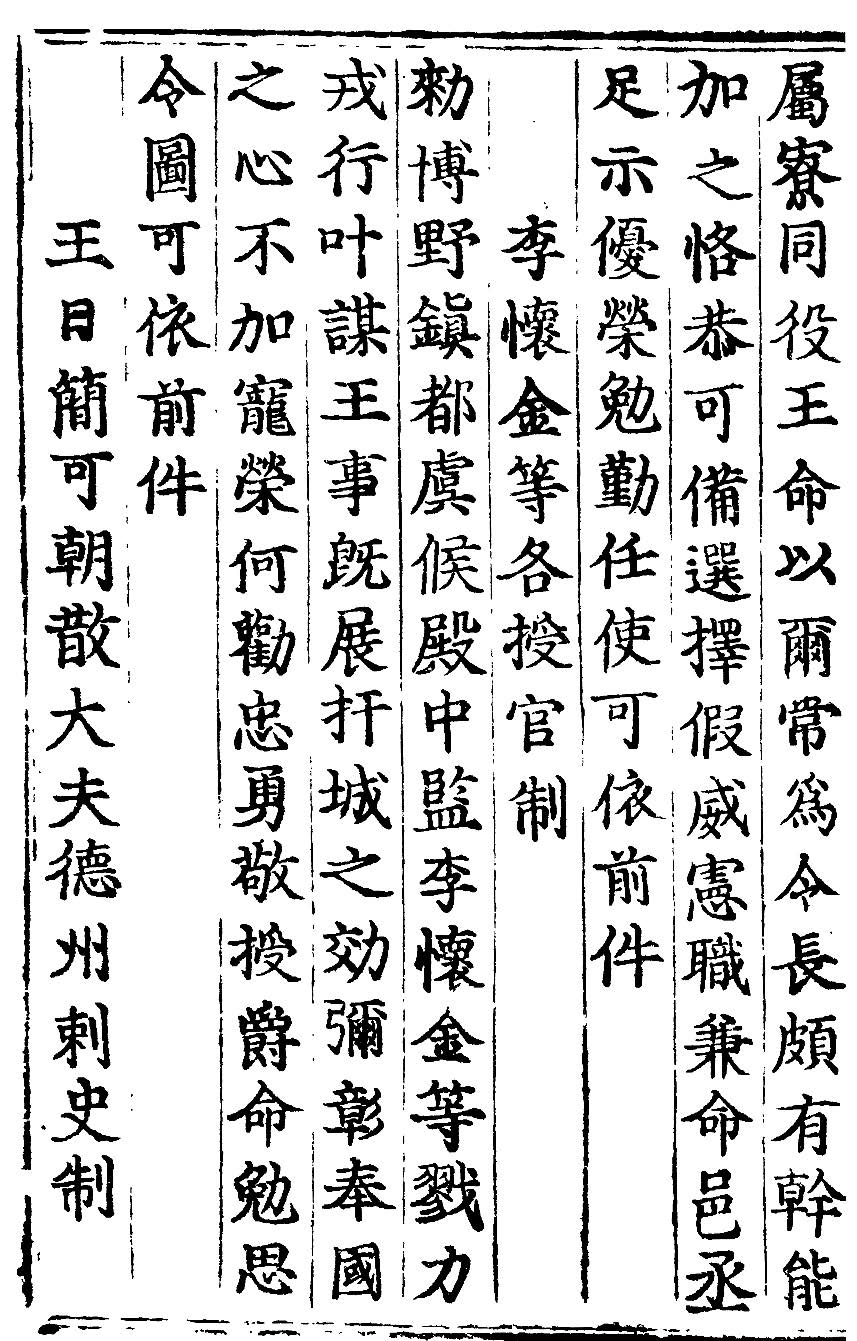 屬寮同役王命以爾常爲令長頗有幹能
加之恪恭可備選擇假威憲職兼命邑丞
足示優榮勉勤任使可依前件
李懷金等各授官制
勑博野鎭都虞候殿中監李懷金等戮力
戎行叶謀王事旣展扞城之効彌彰奉國
之心不加寵榮何勸忠勇敬授爵命勉思
令圖可依前件
王日簡可朝散大夫德州刺史制